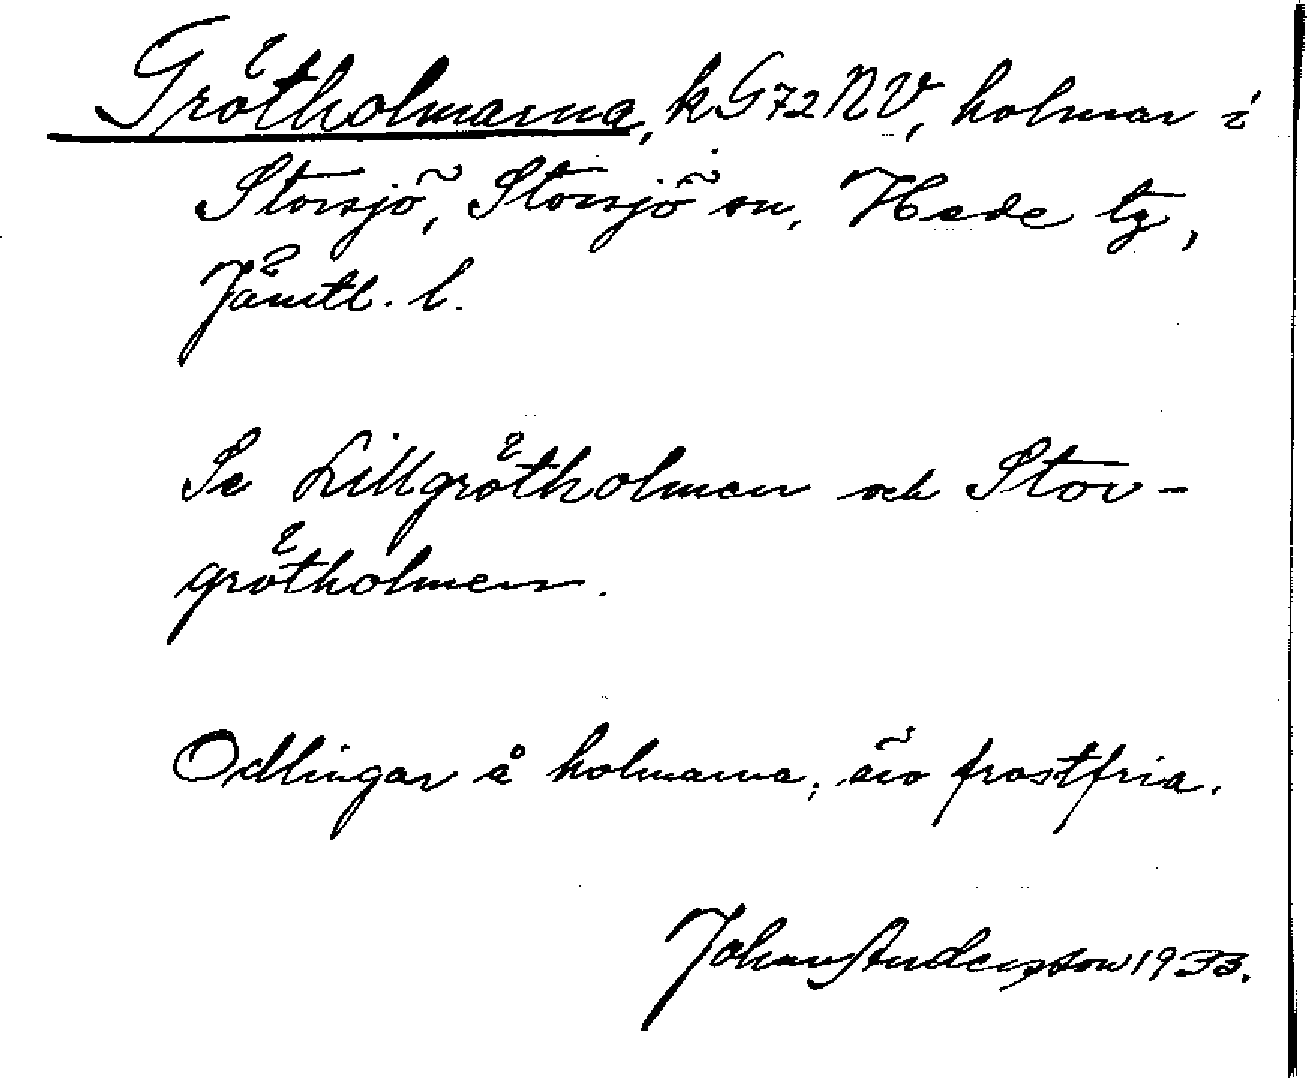 Grötholmarna, k G72NV, holmar i
Storsjö, Storsjö sn, Hede tg,
Jämtl. l.
Se Lillgrötholmen och Stor-
grötholmen.
Odlingar å holmarna; äro frostfria.
Johan Andersson 1933.